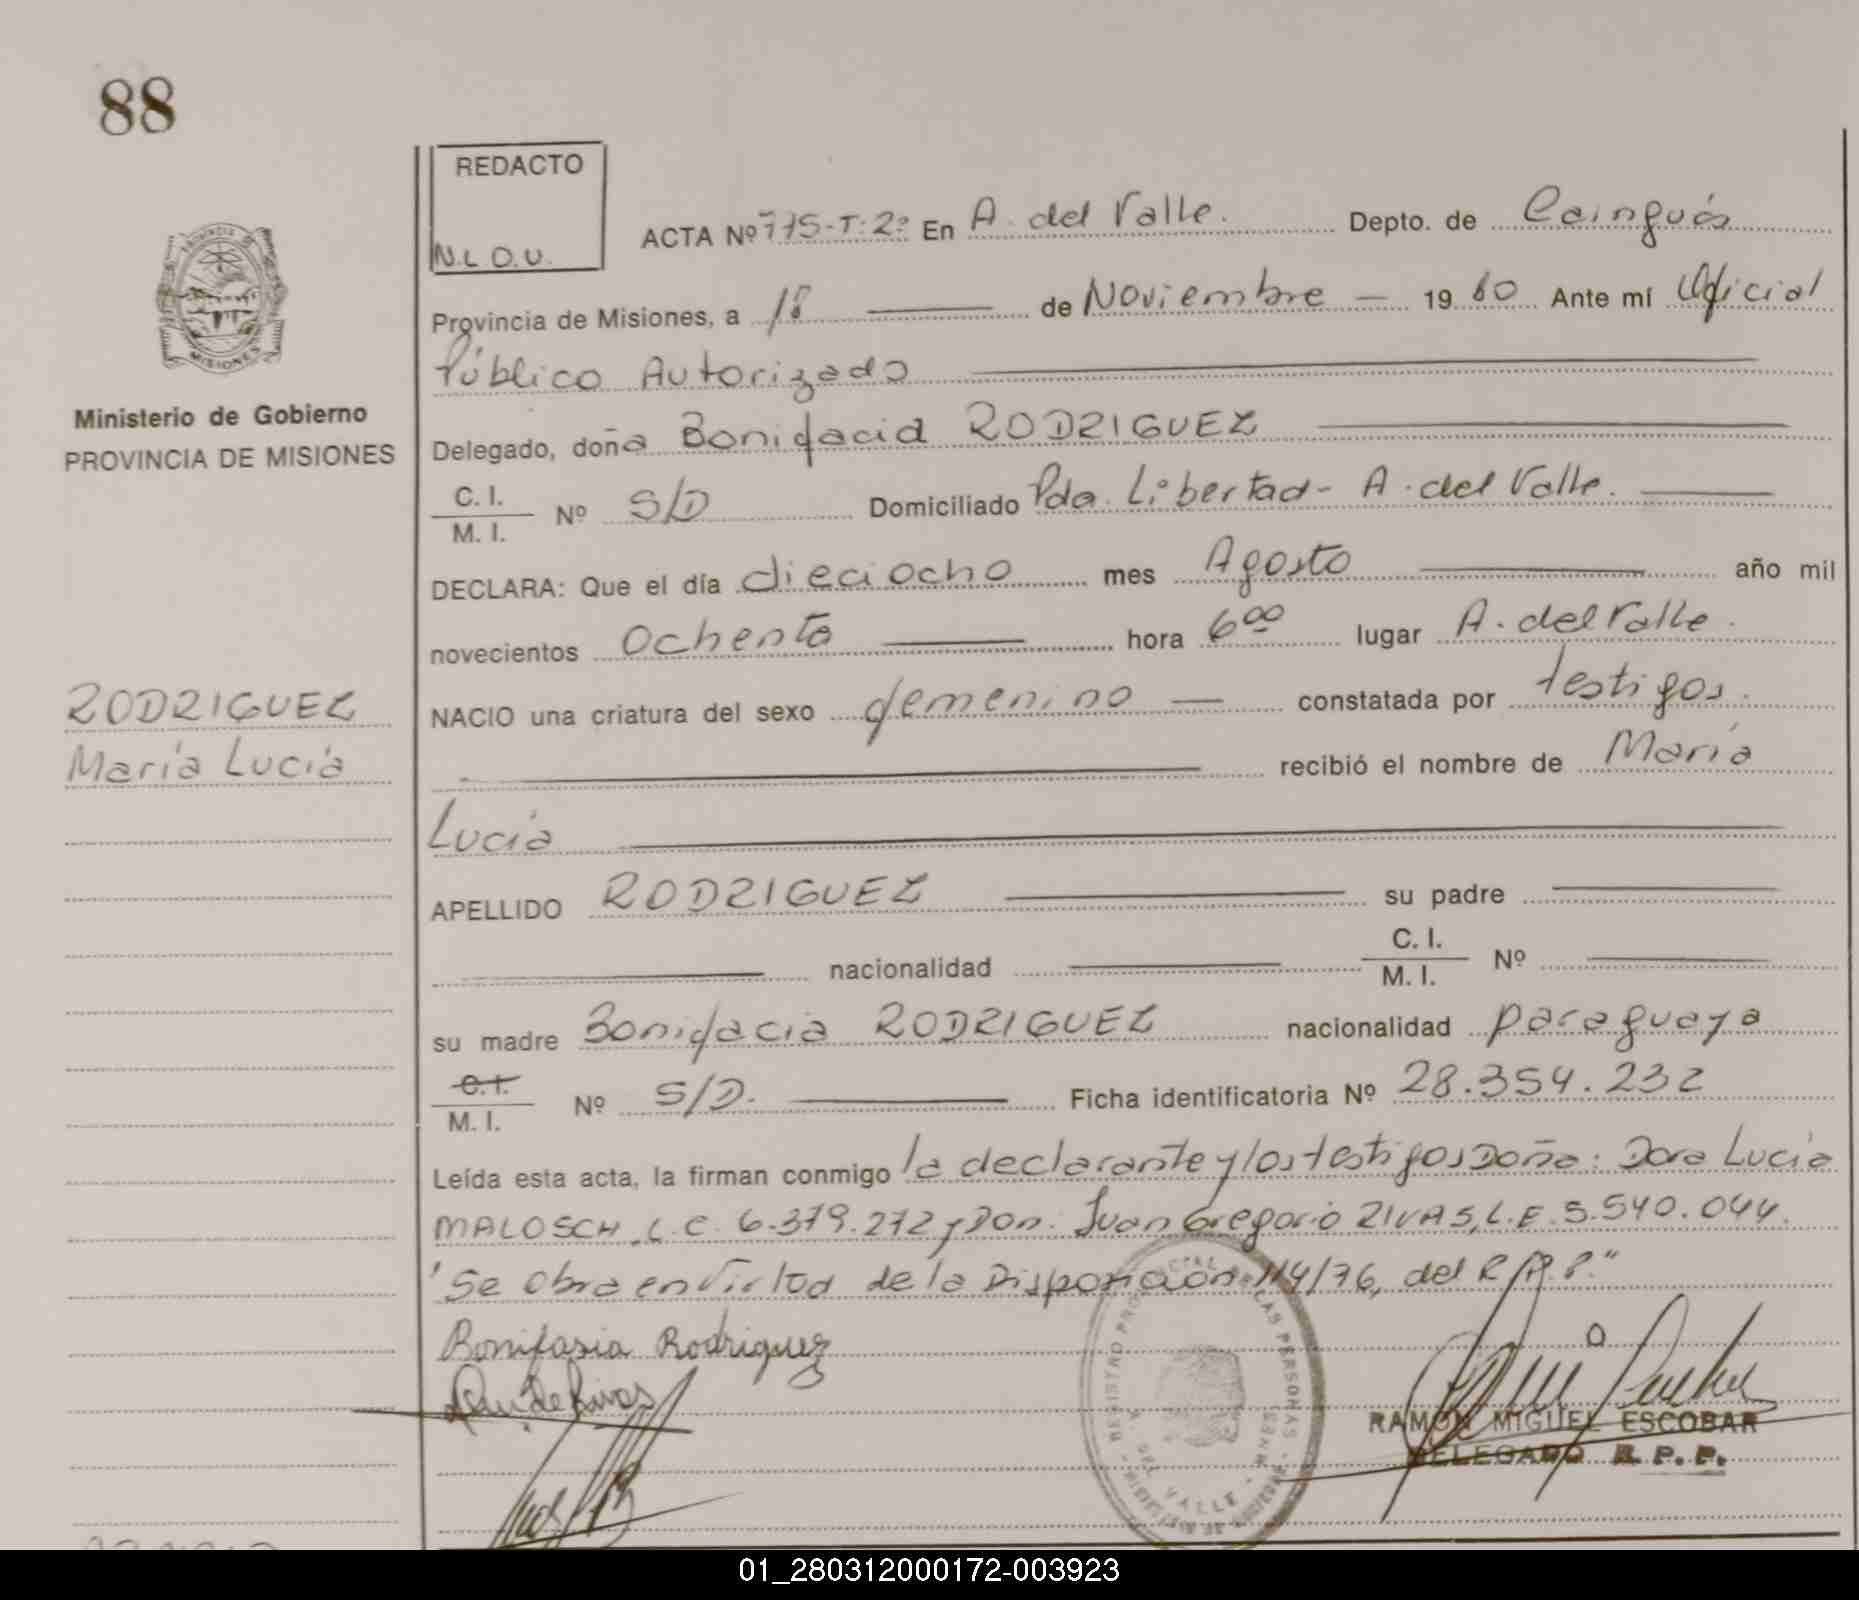 88
REDACTO
N.L.O.U.
ACTA Nº 775-T:2º En A. del Valle. Depto. de Cainguás
Provincia de Misiones, a 18 de Noviembre 19 80 Ante mí Oficial
Público Autorizado
Ministerio de Gobierno
PROVINCIA DE MISIONES
Delegado, doña Bonifacia RODRIGUEZ
C. I.
M. I.
Nº S/D Domiciliado Pda. Libertad - A. del Valle.
DECLARA: Que el día dieciocho mes Agosto año mil
novecientos ochenta hora 6 00 lugar A. del Valle.
RODRIGUEZ
María Lucía
NACIO una criatura del sexo femenino constatada por testigos.
recibió el nombre de María
Lucía
APELLIDO RODRIGUEZ su padre
nacionalidad C. I.
M. I. Nº
su madre Bonifacia RODRIGUEZ nacionalidad paraguaya
C. I.
M. I.
Nº S/D. Ficha identificatoria Nº 28.354.232
Leída esta acta, la firman conmigo la declarante y los testigos Doña: Dora Lucía
MALOSCH, L.C. 6.379.272 y Don. Juan Gregorio RIVAS, L.E. 5.540.044.
"Se obra en Virtud de la Disposición 114/76, del R.P.P."
Bonifasia Rodriguez
de Rivas
REGISTRO PROVINCIAL DE LAS PERSONAS
A. DEL VALLE - MNES
RAMON MIGUEL ESCOBAR
DELEGADO R. P. P.
01_280312000172-003923